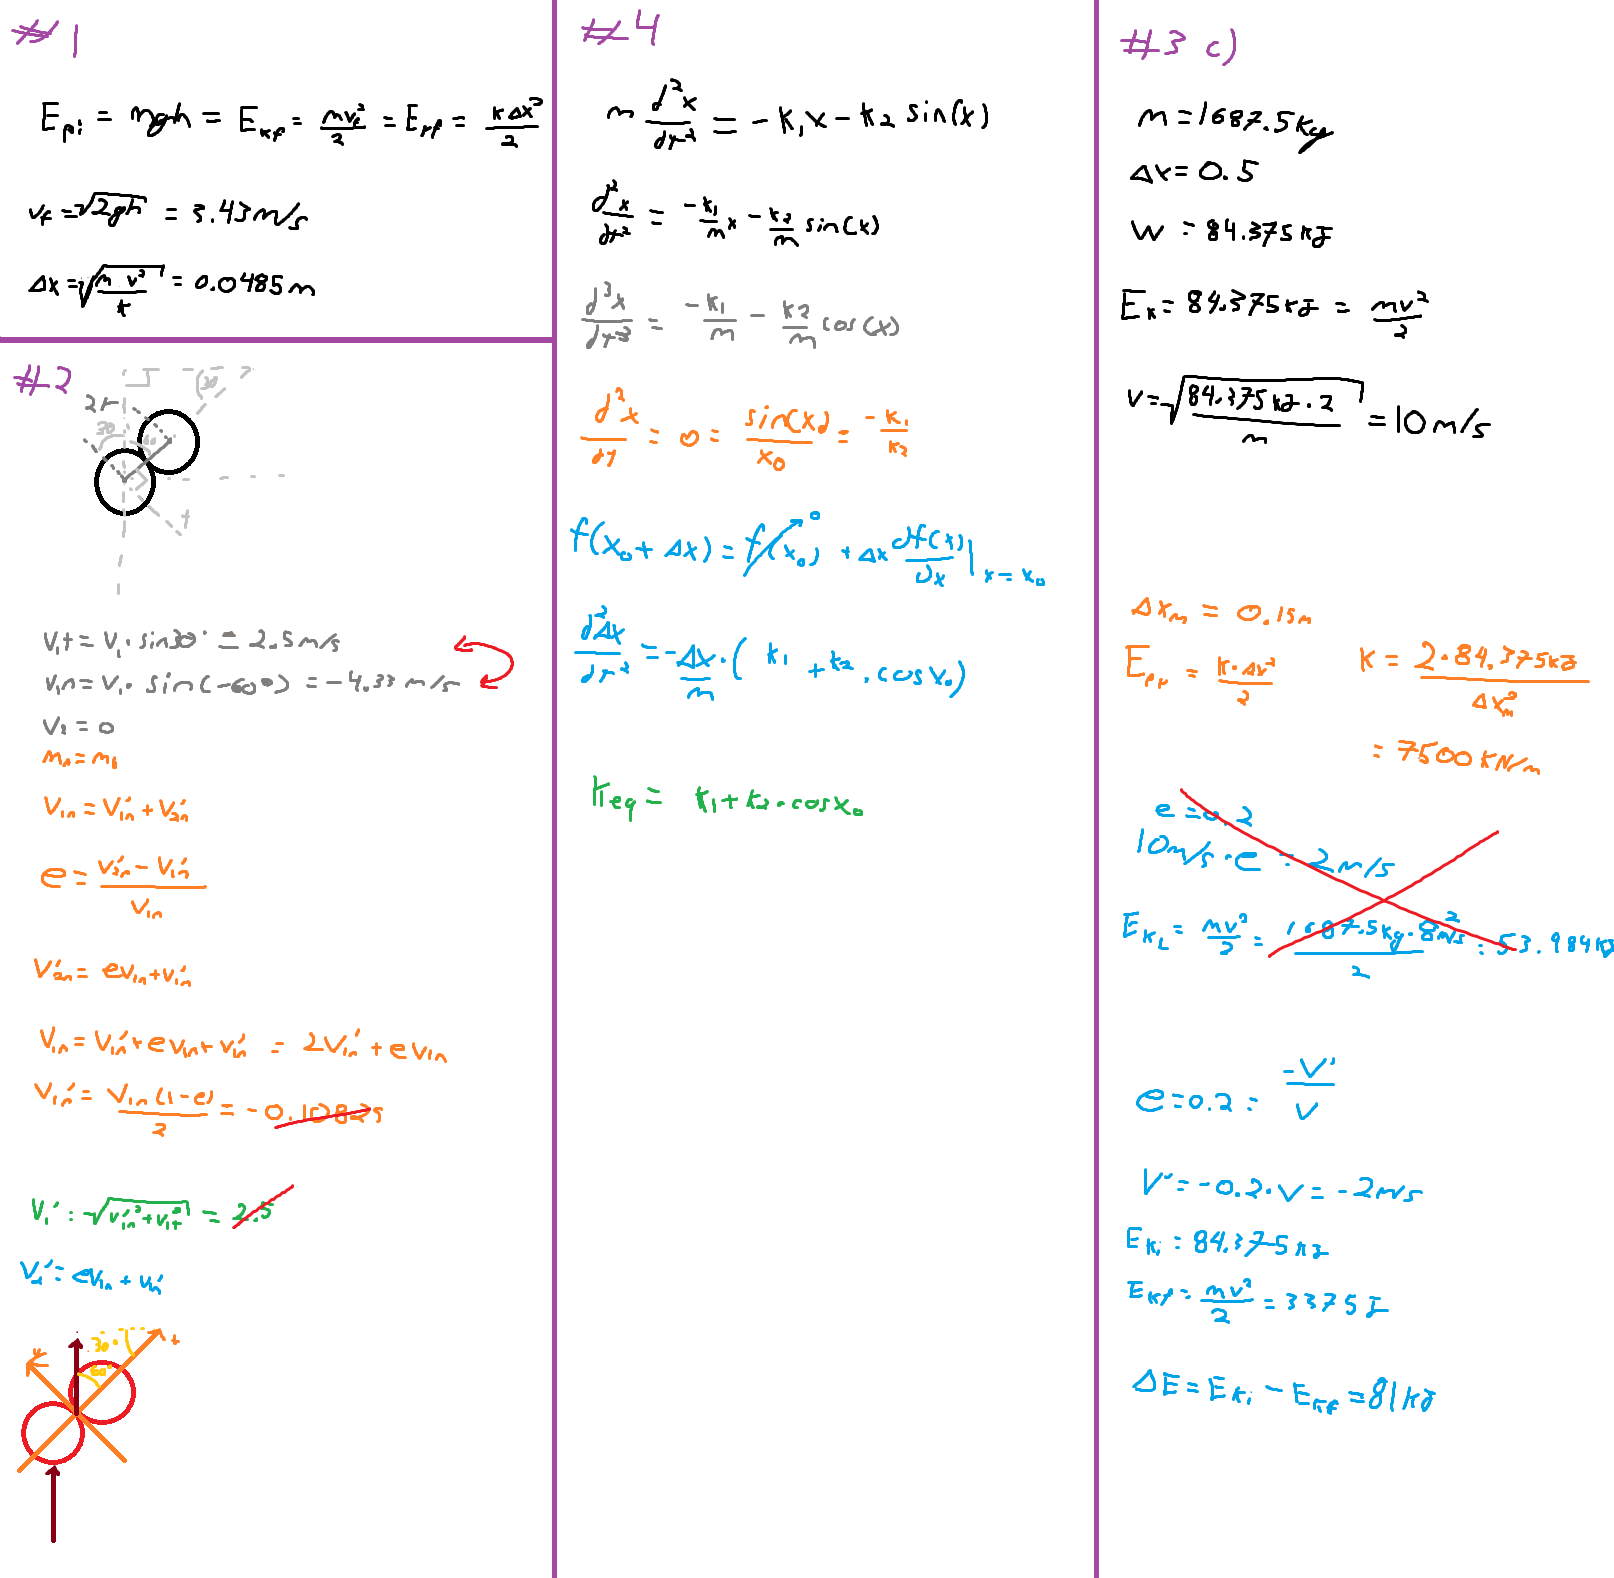 #1
E_pi = mgh = E_kf = mv_f²/2 = E_rf = kΔx²/2
v_f = √2gh = 3.43 m/s
Δx = √(m v²/k) = 0.0485 m
#2
30
2r
30
60
t
V₁t = V₁ · sin30° = 2.5 m/s
V₁n = V₁ · sin(-60°) = -4.33 m/s
V₂ = 0
V₁n = V₁n' + V₂n'
e = (V₂n' - V₁n')/V₁n
V₂n' = eV₁n + V₁n'
V₁n = V₁n' + eV₁n + V₁n' = 2V₁n' + eV₁n
V₁n' = V₁n(1-e)/2 = -0.10825
V₁' = √(V₁n'² + V₁t²) = 2.5
V₂' = eV₁n + V₁n'
30°
60°
t
#4
m d²x/dt² = -k₁x - k₂ sin(x)
d²x/dt² = -k₁/m x - k₂/m sin(x)
d³x/dt³ = -k₁/m - k₂/m cos(x)
d²x/dt = 0 = sin(x₀)/x₀ = -k₁/k₂
f(x₀ + Δx) = f(x₀) 0 + Δx df(x)/dx | x = x₀
d²Δx/dt² = -Δx/m · (k₁ + k₂ · cos x₀)
k_eq = k₁ + k₂ · cos x₀
#3 c)
m = 1687.5 kg
Δx = 0.5
W = 84.375 kJ
E_k = 84.375 kJ = mv²/2
V = √(84.375 kJ · 2/m) = 10 m/s
Δx_m = 0.15m
E_pr = k·Δx²/2 k = 2·84.375kJ/Δx_m²
= 7500 kN/m
e = 0.2
10m/s · e = 2m/s
E_kL = mv²/2 = 1687.5kg · 8m/s²/2 = 53.984 kJ
e = 0.2 = -V'/V
V' = -0.2 · V = -2m/s
E_ki = 84.375 kJ
E_kf = mv²/2 = 3375 J
ΔE = E_ki - E_kf = 81 kJ